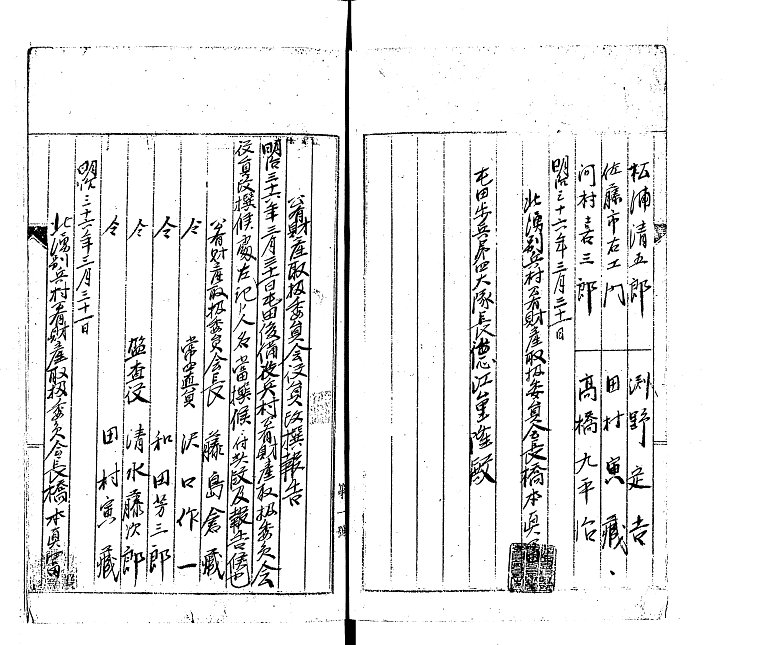 松浦清五郎 渕野定吉
佐藤市右エ門 田村寅藏
河村喜三郎 高橋九平治
明治三十六年三月三十一日
北湧別兵村公有財産取扱委員会長橋本真富
屯田歩兵第四大隊長徳江重隆殿
公有財産取扱委員会役員改撰報告
明治三十六年三月三十一日屯田後備役兵村公有財産取扱委員会
役員改撰候處左記ノ人名當撰候ニ付此段及報告候也
公有財産取扱委員会長 藤島倉藏
仝 常置員 沢口作一
仝 和田芳三郎
仝 監査役 清水藤次郎
仝 田村寅藏
明治三十六年三月三十一日
北湧別兵村公有財産取扱委員会長橋本真富